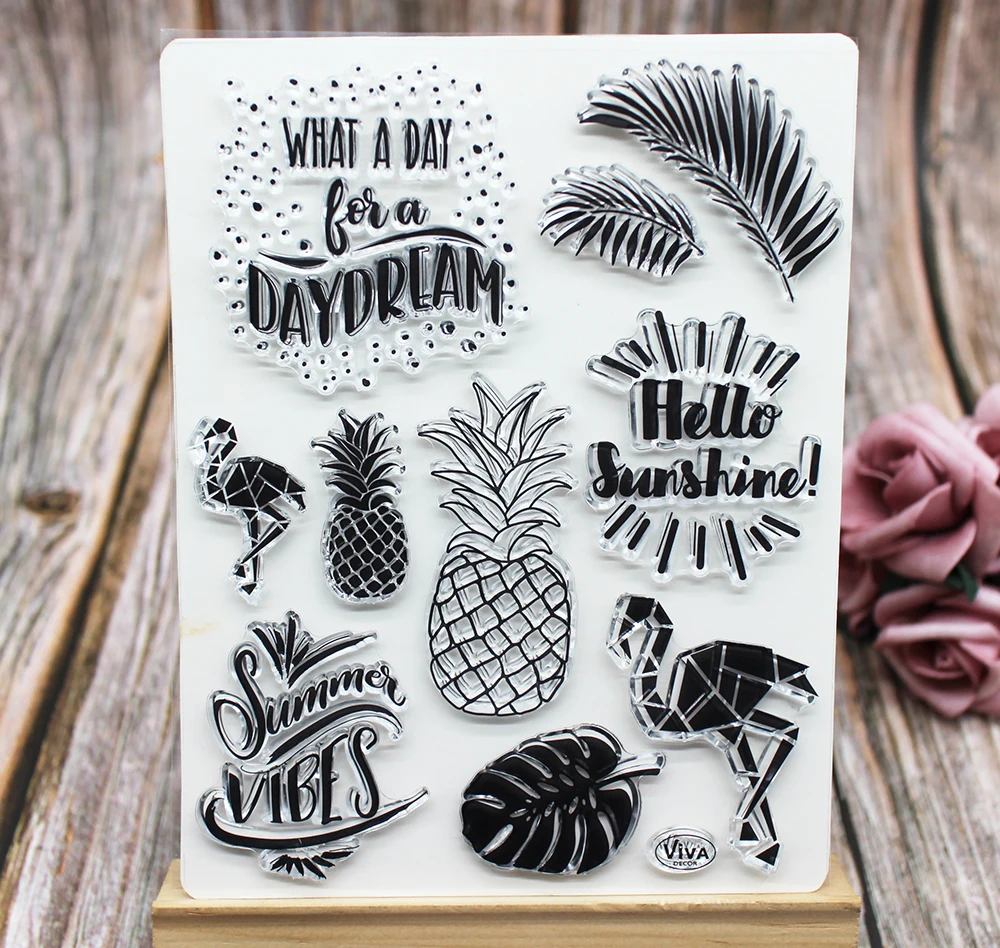 WHAT A DAY
for a
DAYDREAM
Hello
Sunshine!
Summer
VIBES
ViVA
DECOR